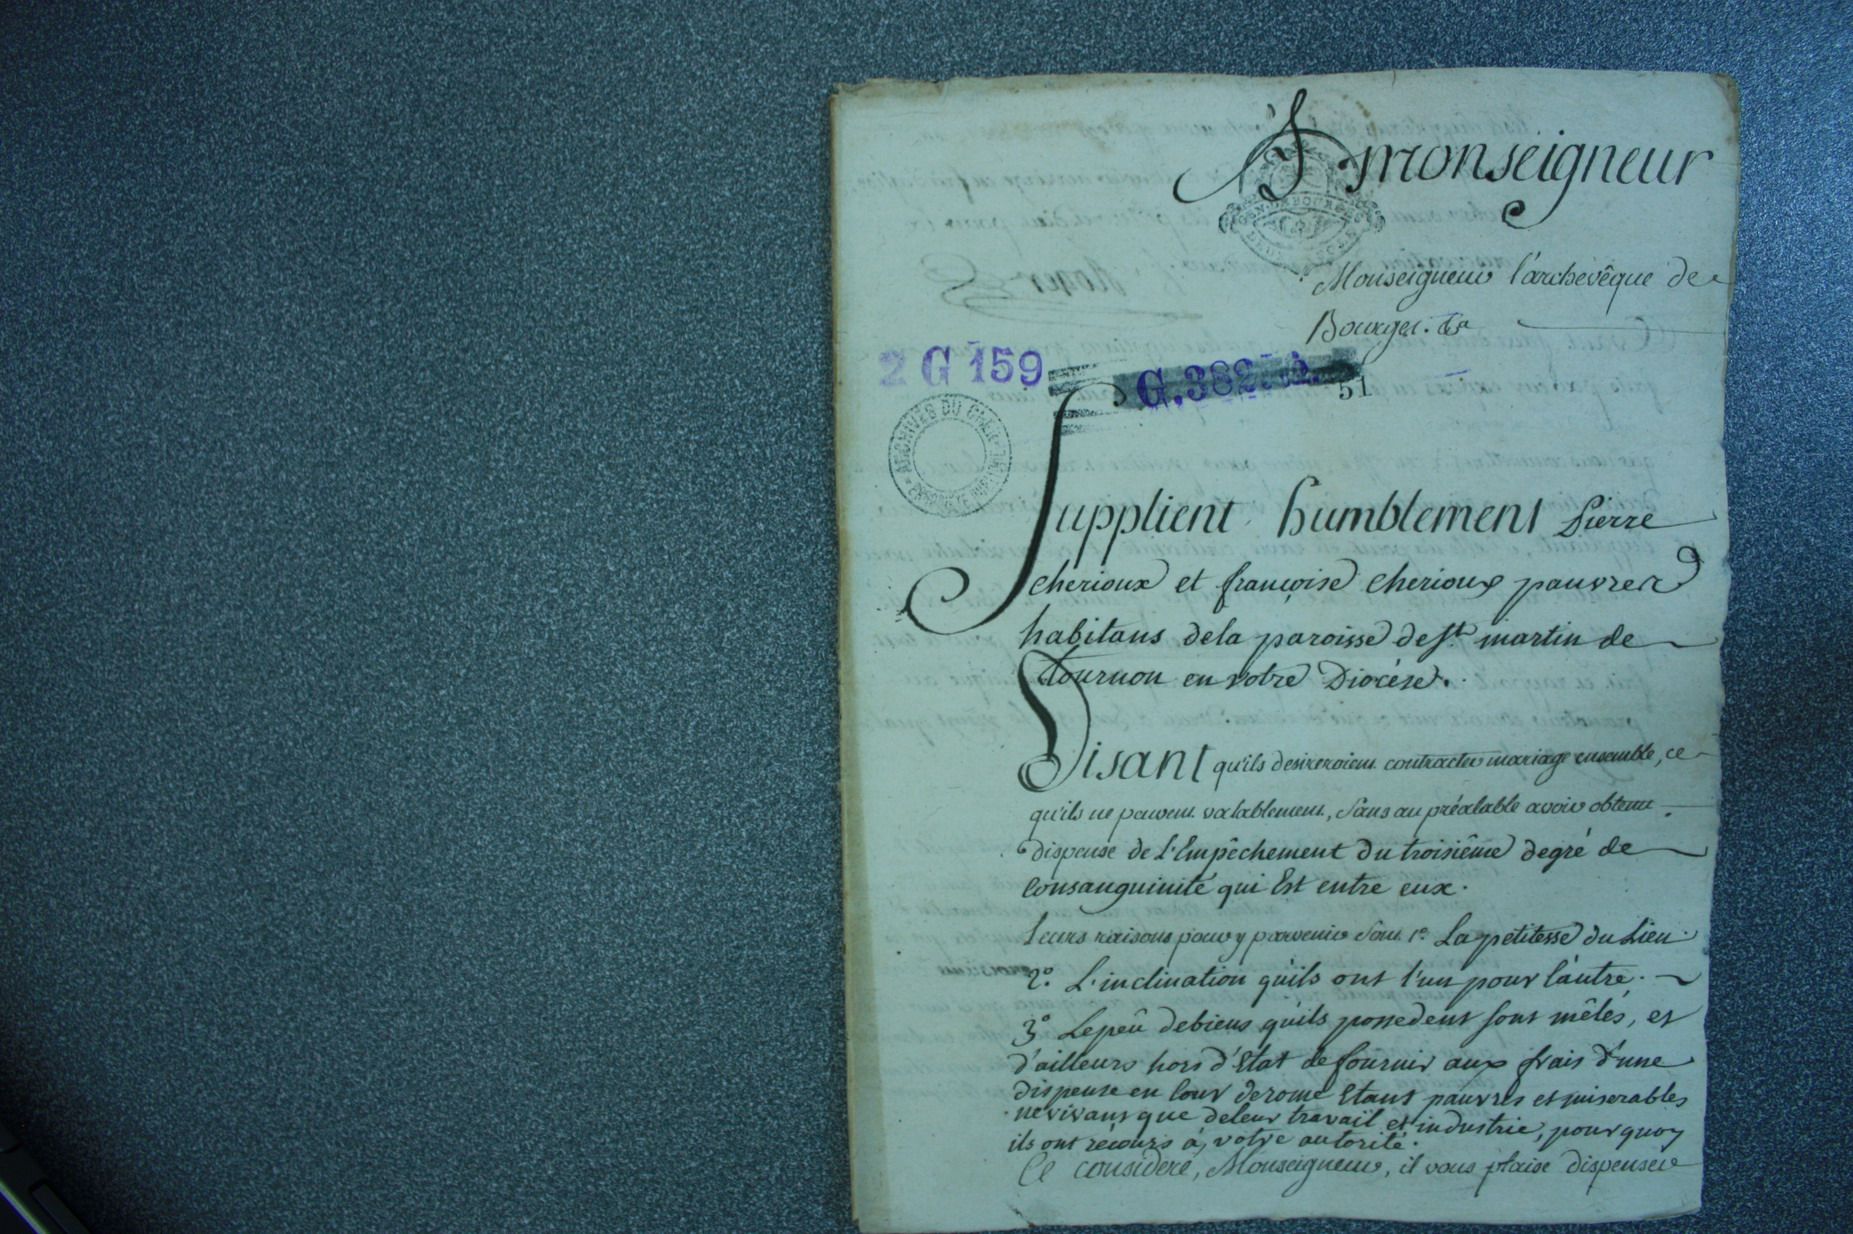 A monseigneur
Monseigneur l'archevêque de
Bourges. &a
2 G 159
G.382.
51
ARCHIVES DU CHER
Supplient humblement Pierre
cherioux et françoise cherioux pauvres
habitans dela paroisse de St. martin de
Tournon en votre Diocése.
Disant qu'ils desireroient contracter mariage ensemble, ce
qu'ils ne peuvent valablement, sans au préalable avoir obtenu
dispense de L'Empêchement du troisiême degré de
consanguinité qui Est entre eux.
Leurs raisons pour y parvenir sont 1º La petitesse du Lieu.
2º. L'inclination qu'ils ont l'un pour l'autre.
3º Le peû de biens qu'ils possedent sont mêlés, et
d'ailleurs hors d'Etat de fournir aux frais d'une
dispense en Cour de rome Etant pauvres et miserables
ne vivans que de leur travail et industrie, pourquoy
ils ont recours à votre autorité.
Ce consideré, Monseigneur, il vous plaise dispenser